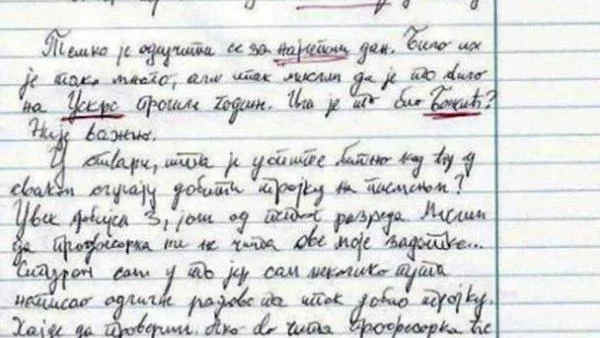 Тешко је одлучити се за најлепши дан. Било их
је тако много, али ипак мислим да је то било
на Ускрс прошле године. Или је то био Божић?
Није важно.
У ствари, шта је уопште битно кад ћу у
сваком случају добити тројку на писменом?
Увек добијем 3, још од петог разреда. Мислим
да професорка ни не чита ове моје задатке...
Сигуран сам у то јер сам неколико пута
написао одличне радове па ипак добио тројку.
Хајде да проверим. Ако ово чита професорка ће